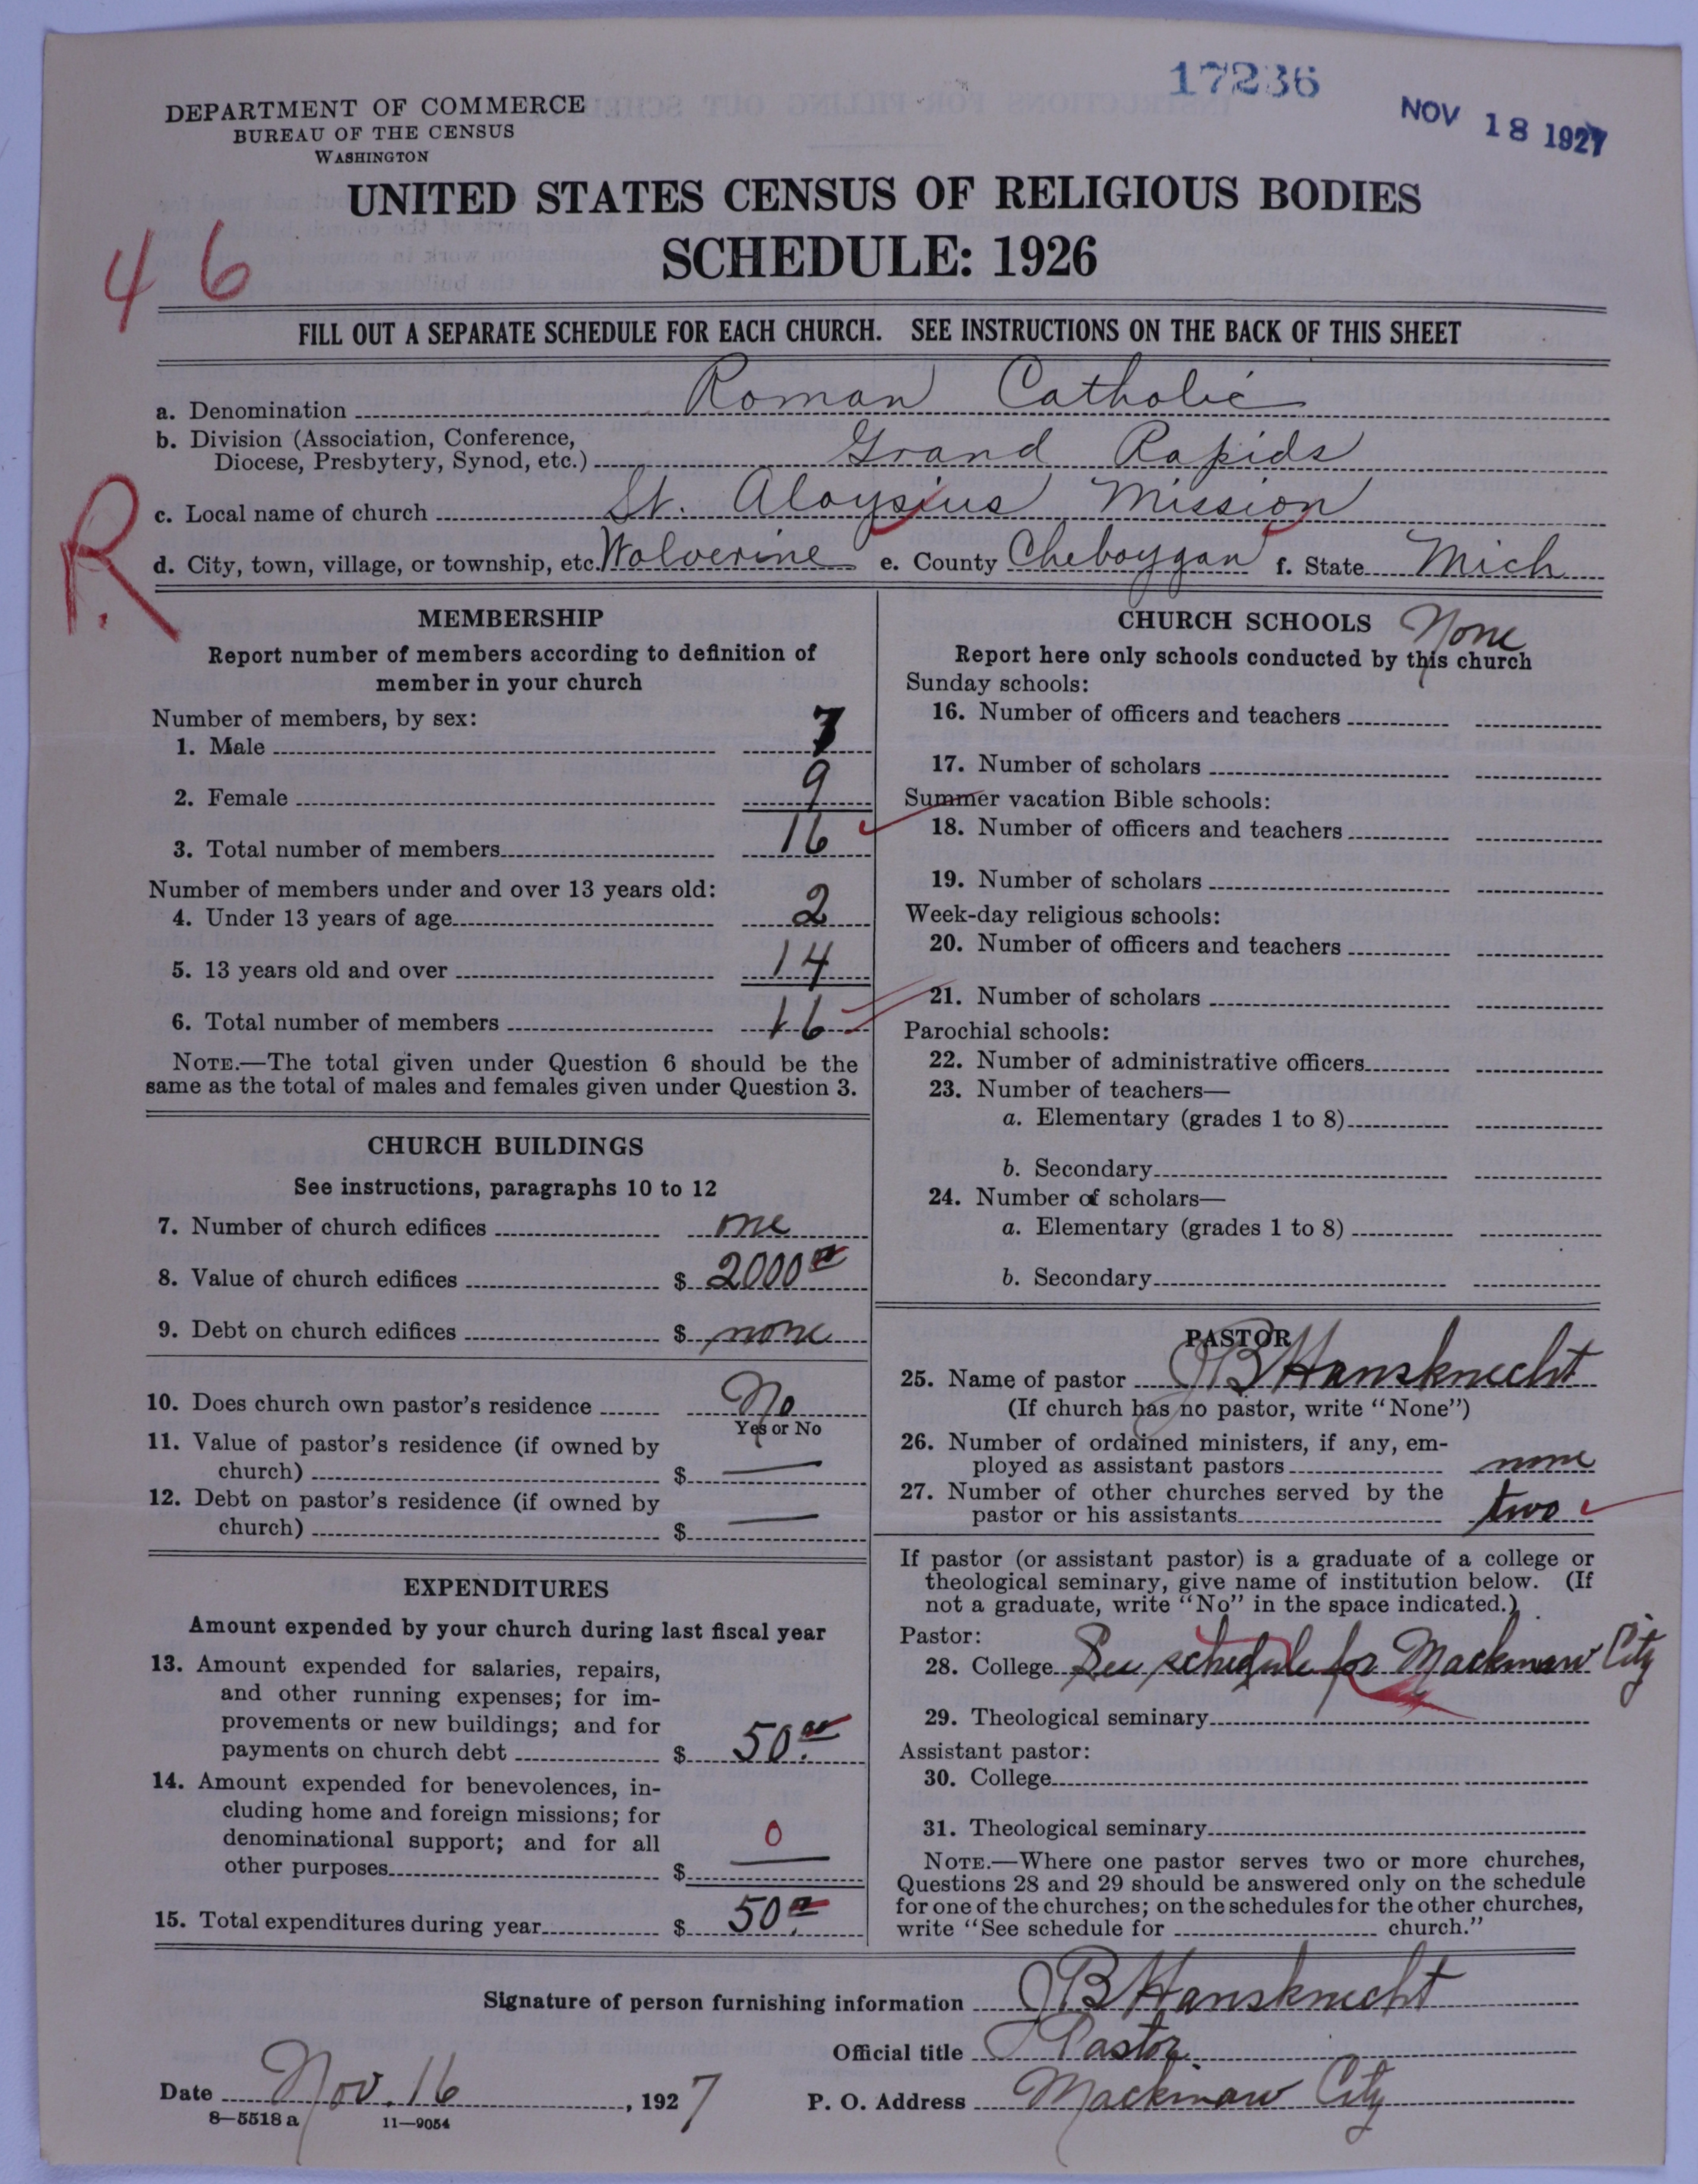 17236
NOV 18 1927
DEPARTMENT OF COMMERCE
BUREAU OF THE CENSUS
WASHINGTON
UNITED STATES CENSUS OF RELIGIOUS BODIES
SCHEDULE: 1926
46
FILL OUT A SEPARATE SCHEDULE FOR EACH CHURCH. SEE INSTRUCTIONS ON THE BACK OF THIS SHEET
a. Denomination Roman Catholic
b. Division (Association, Conference,
Diocese, Presbytery, Synod, etc.) Grand Rapids
c. Local name of church St. Aloysius Mission
R.
d. City, town, village, or township, etc. Wolverine e. County Cheboygan f. State Mich
MEMBERSHIP
Report number of members according to definition of
member in your church
Number of members, by sex:
1. Male 7
2. Female 9
3. Total number of members 16
Number of members under and over 13 years old:
4. Under 13 years of age 2
5. 13 years old and over 14
6. Total number of members 16
NOTE.—The total given under Question 6 should be the
same as the total of males and females given under Question 3.
CHURCH BUILDINGS
See instructions, paragraphs 10 to 12
7. Number of church edifices one
8. Value of church edifices $ 2000 00
9. Debt on church edifices $ none
10. Does church own pastor's residence No
Yes or No
11. Value of pastor's residence (if owned by
church) $ —
12. Debt on pastor's residence (if owned by
church) $ —
EXPENDITURES
Amount expended by your church during last fiscal year
13. Amount expended for salaries, repairs,
and other running expenses; for im-
provements or new buildings; and for
payments on church debt $ 50.00
14. Amount expended for benevolences, in-
cluding home and foreign missions; for
denominational support; and for all 0
other purposes $ —
15. Total expenditures during year $ 50.00
CHURCH SCHOOLS None
Report here only schools conducted by this church
Sunday schools:
16. Number of officers and teachers
17. Number of scholars
Summer vacation Bible schools:
18. Number of officers and teachers
19. Number of scholars
Week-day religious schools:
20. Number of officers and teachers
21. Number of scholars
Parochial schools:
22. Number of administrative officers
23. Number of teachers—
a. Elementary (grades 1 to 8)
b. Secondary
24. Number of scholars—
a. Elementary (grades 1 to 8)
b. Secondary
PASTOR
25. Name of pastor JB Hansknecht
(If church has no pastor, write "None")
26. Number of ordained ministers, if any, em-
ployed as assistant pastors none
27. Number of other churches served by the
pastor or his assistants two
If pastor (or assistant pastor) is a graduate of a college or
theological seminary, give name of institution below. (If
not a graduate, write "No" in the space indicated.)
Pastor:
28. College See schedule for Mackinaw City
29. Theological seminary
Assistant pastor:
30. College
31. Theological seminary
NOTE.—Where one pastor serves two or more churches,
Questions 28 and 29 should be answered only on the schedule
for one of the churches; on the schedules for the other churches,
write "See schedule for church."
Signature of person furnishing information JB Hansknecht
Official title Pastor
Date Nov. 16, 1927 P. O. Address Mackinaw City
8—5518 a 11—9054